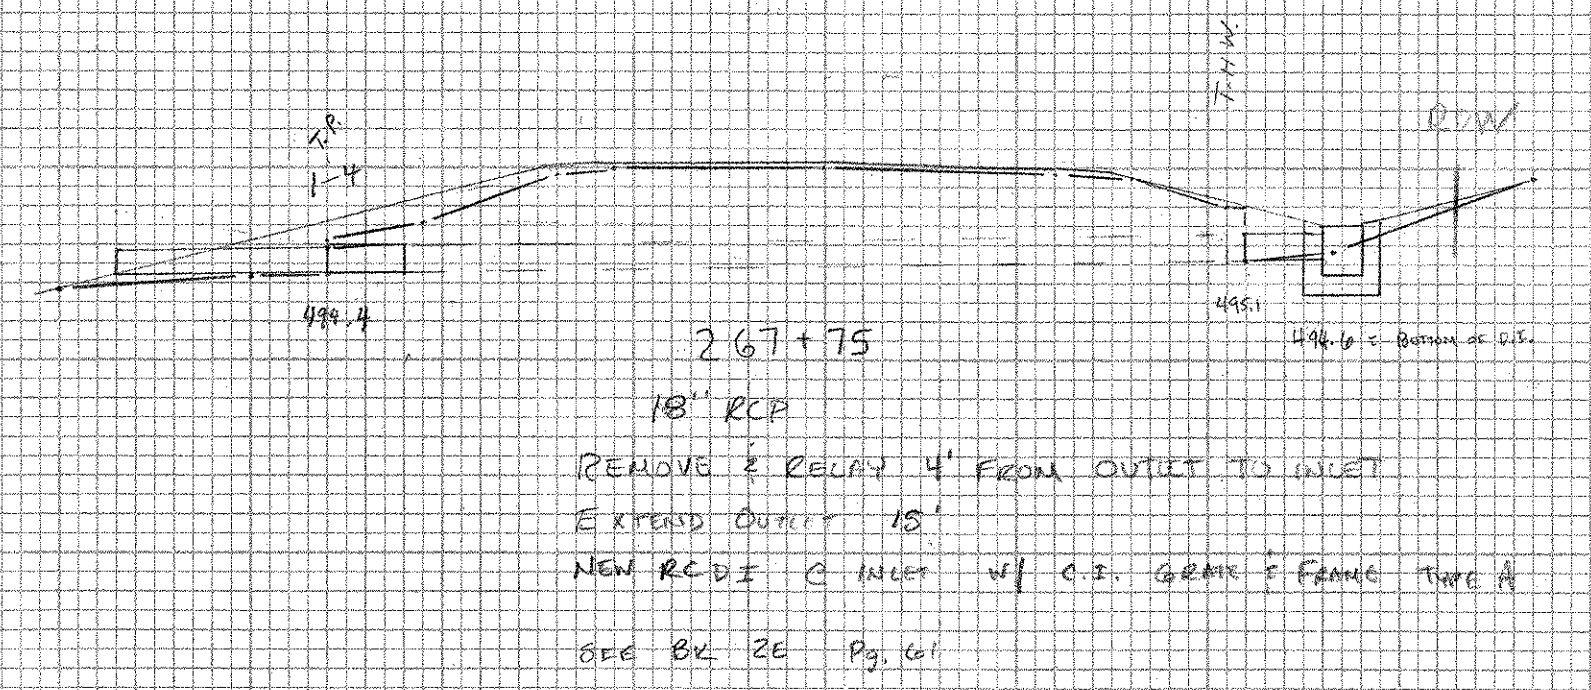 T.H.W.
R.O.W
T.P.
1-4
494.4
495.1
494.6 = BOTTOM OF D.I.
267+75
18" RCP
REMOVE & RELAY 4' FROM OUTLET TO INLET
EXTEND OUTLET 15'
NEW RCDI @ INLET W/ C.I. GRATE & FRAME TYPE A
SEE BK 2E Pg. 61